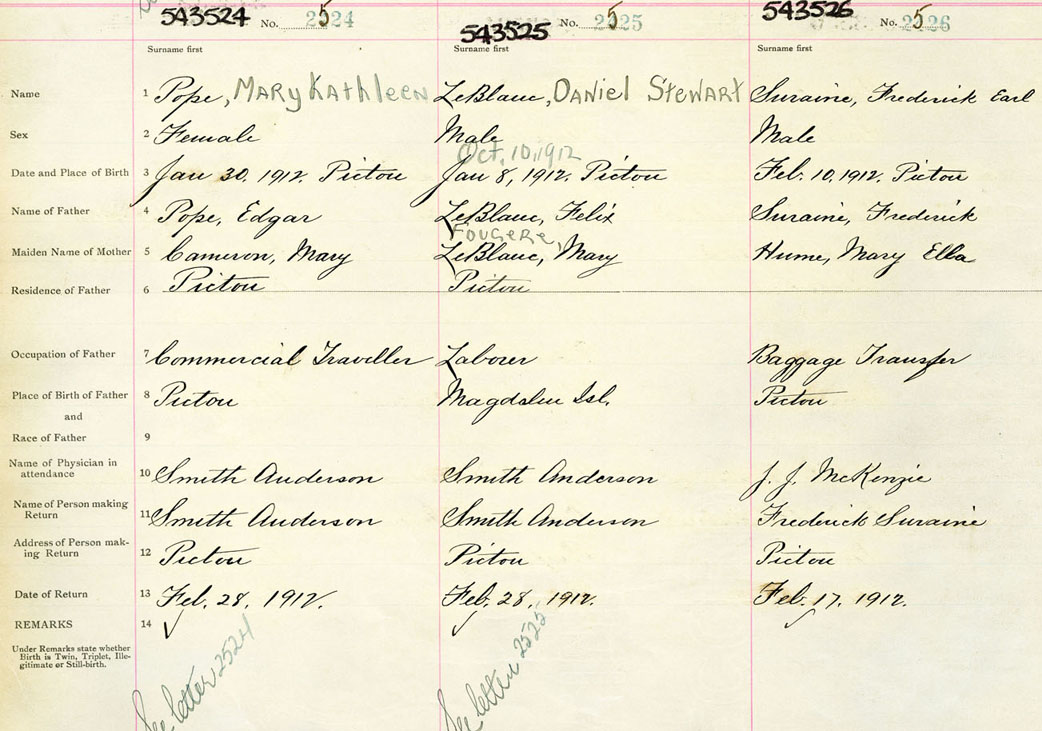 543524 No. 2524 543525 No. 2525 543526 No. 2526
Surname first Surname first Surname first
Name 1 Pope, Mary Kathleen LeBlanc, Daniel Stewart Suraine, Frederick Earl
Sex 2 Female Male Male
Oct. 10, 1912
Date and Place of Birth 3 Jan 30, 1912. Pictou Jan 8, 1912. Pictou Feb. 10, 1912. Pictou
Name of Father 4 Pope, Edgar LeBlanc, Felix Suraine, Frederick
Fougere,
Maiden Name of Mother 5 Cameron, Mary LeBlanc, Mary Hume, Mary Ella
Residence of Father 6 Pictou Pictou
Occupation of Father 7 Commercial Traveller Laborer Baggage Transfer
Place of Birth of Father 8 Pictou Magdalen Isl. Pictou
and
Race of Father 9
Name of Physician in
attendance 10 Smith Anderson Smith Anderson J. J. McKenzie
Name of Person making
Return 11 Smith Anderson Smith Anderson Frederick Suraine
Address of Person mak-
ing Return 12 Pictou Pictou Pictou
Date of Return 13 Feb. 28, 1912. Feb. 28, 1912. Feb. 17, 1912.
REMARKS 14
Under Remarks state whether
Birth is Twin, Triplet, Ille-
gitimate or Still-birth.
See letter 2524 See letter 2525